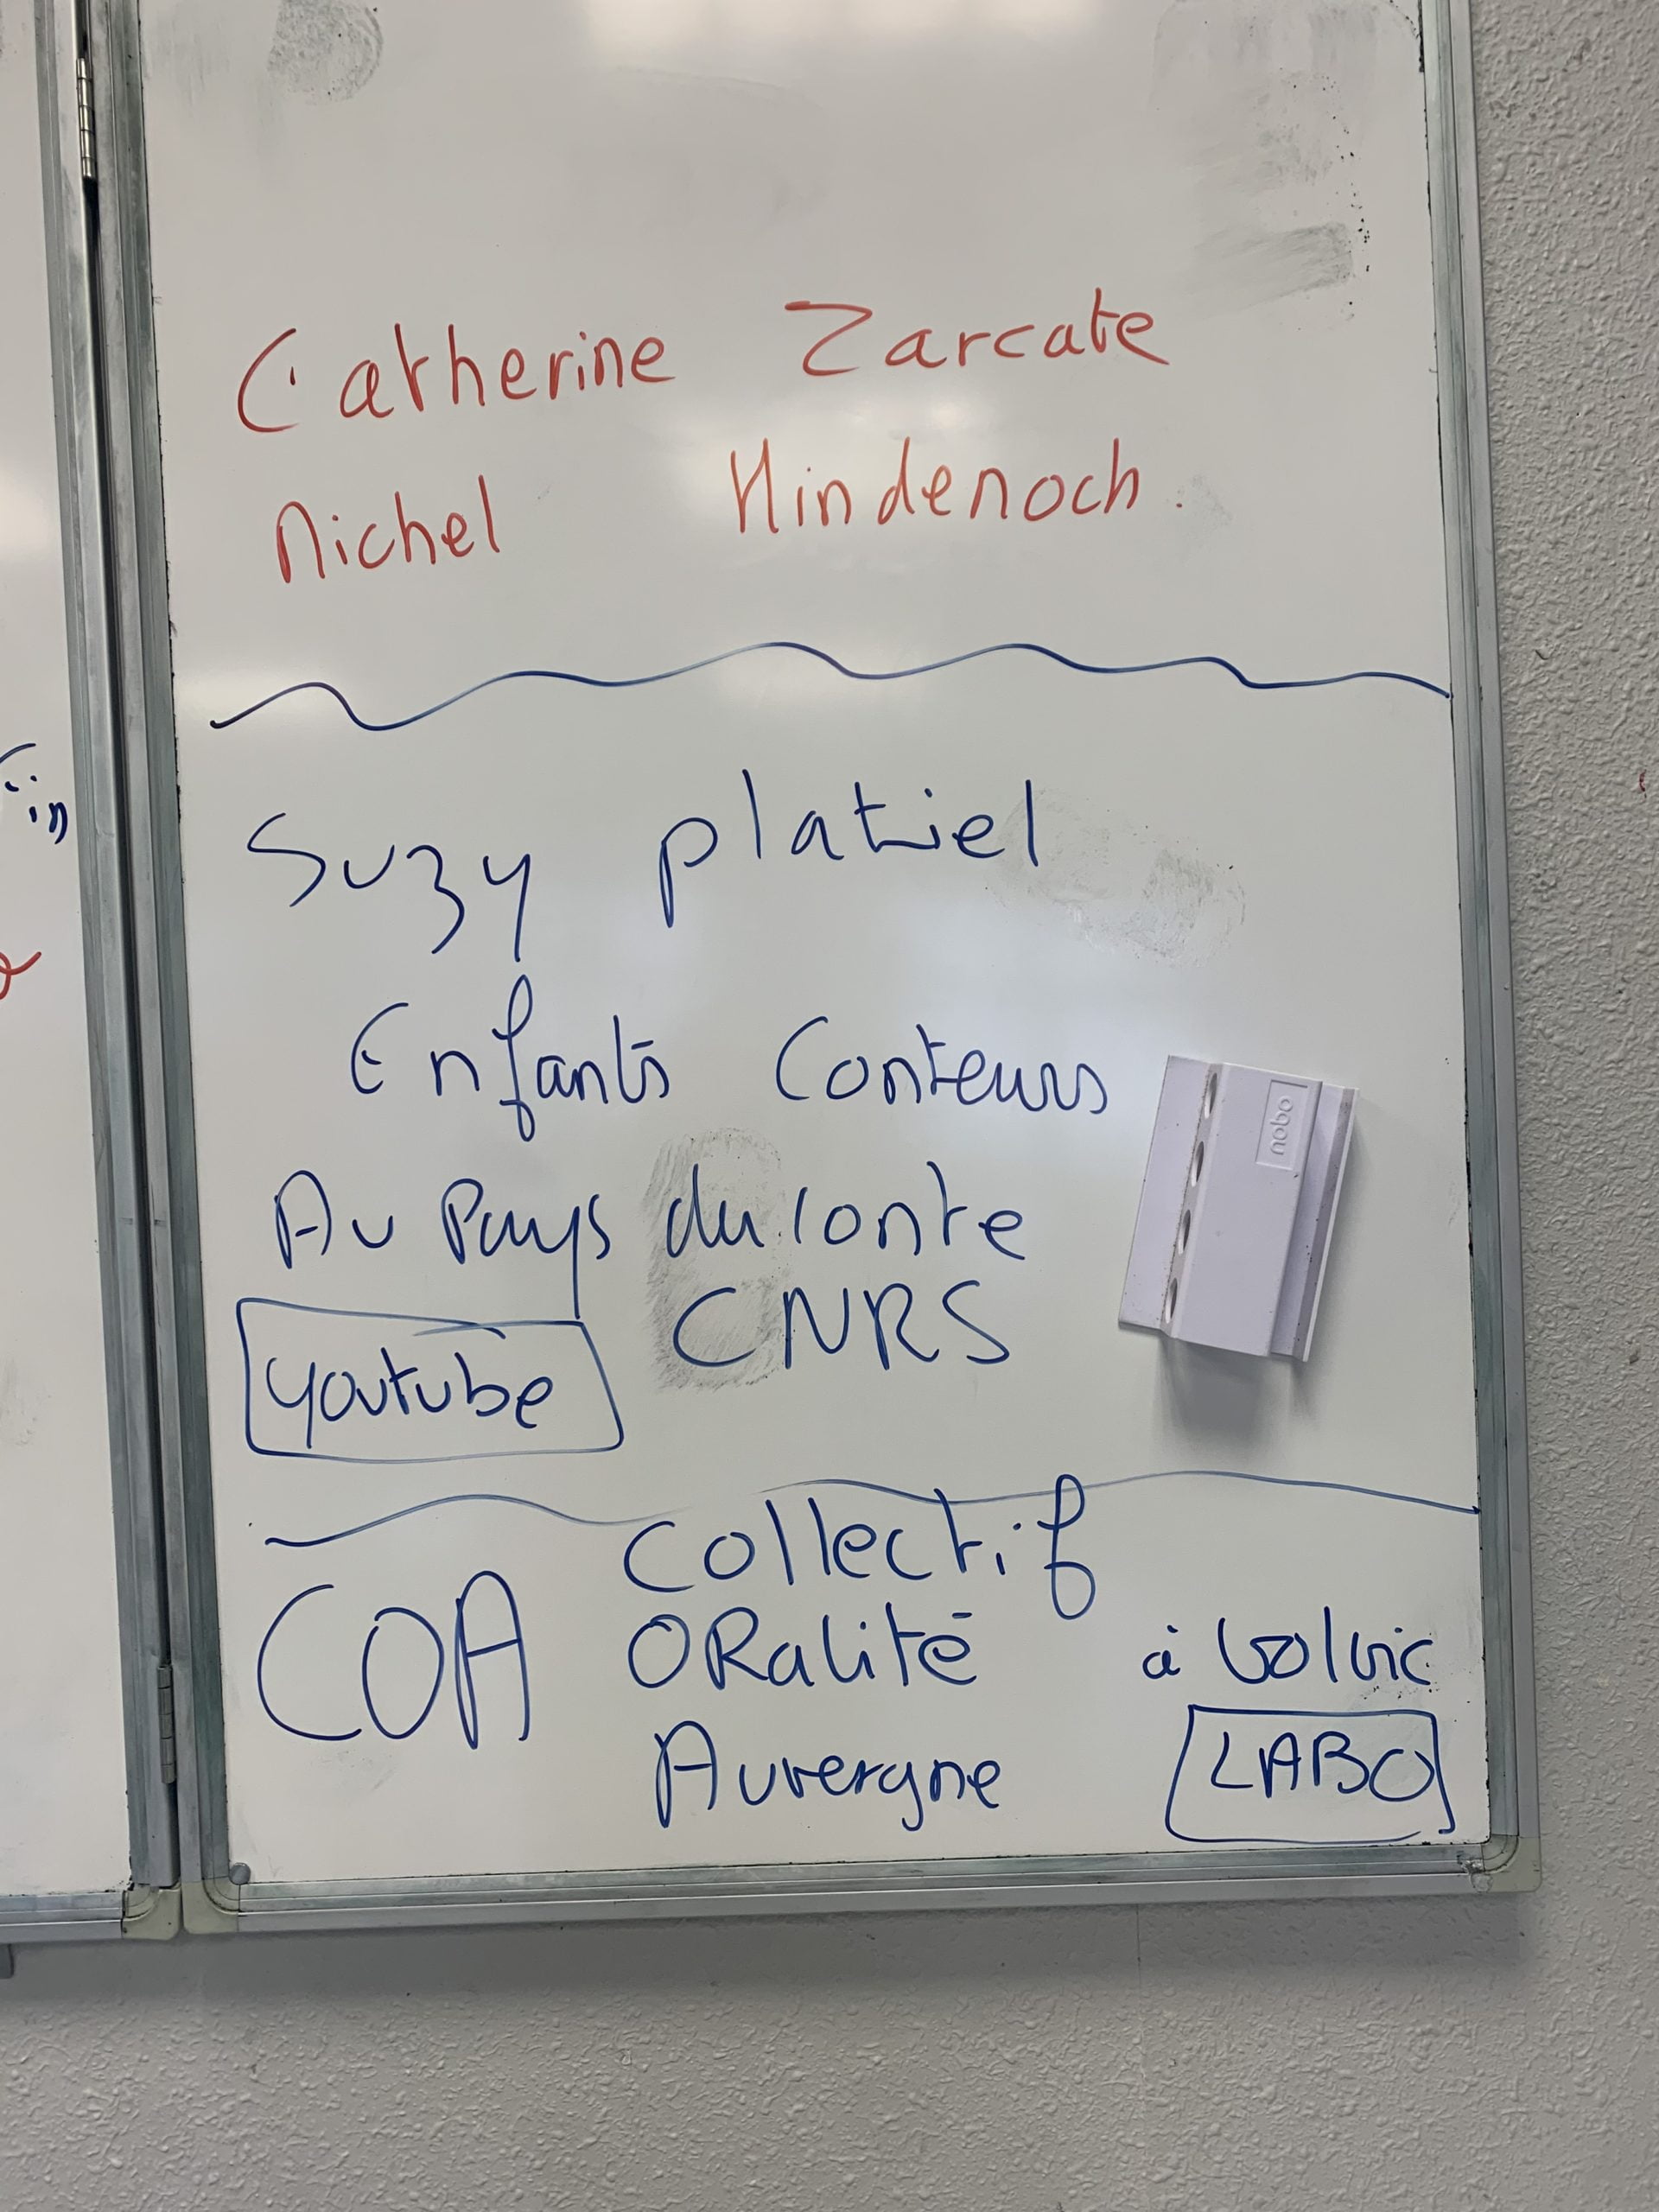 Catherine Zarcate
Michel Hindenoch
Suzy platiel
Enfants Conteurs
Au Pays du Conte
CNRS
youtube
nobo
COA
Collectif
ORalité
Auvergne
à Volvic
LABO